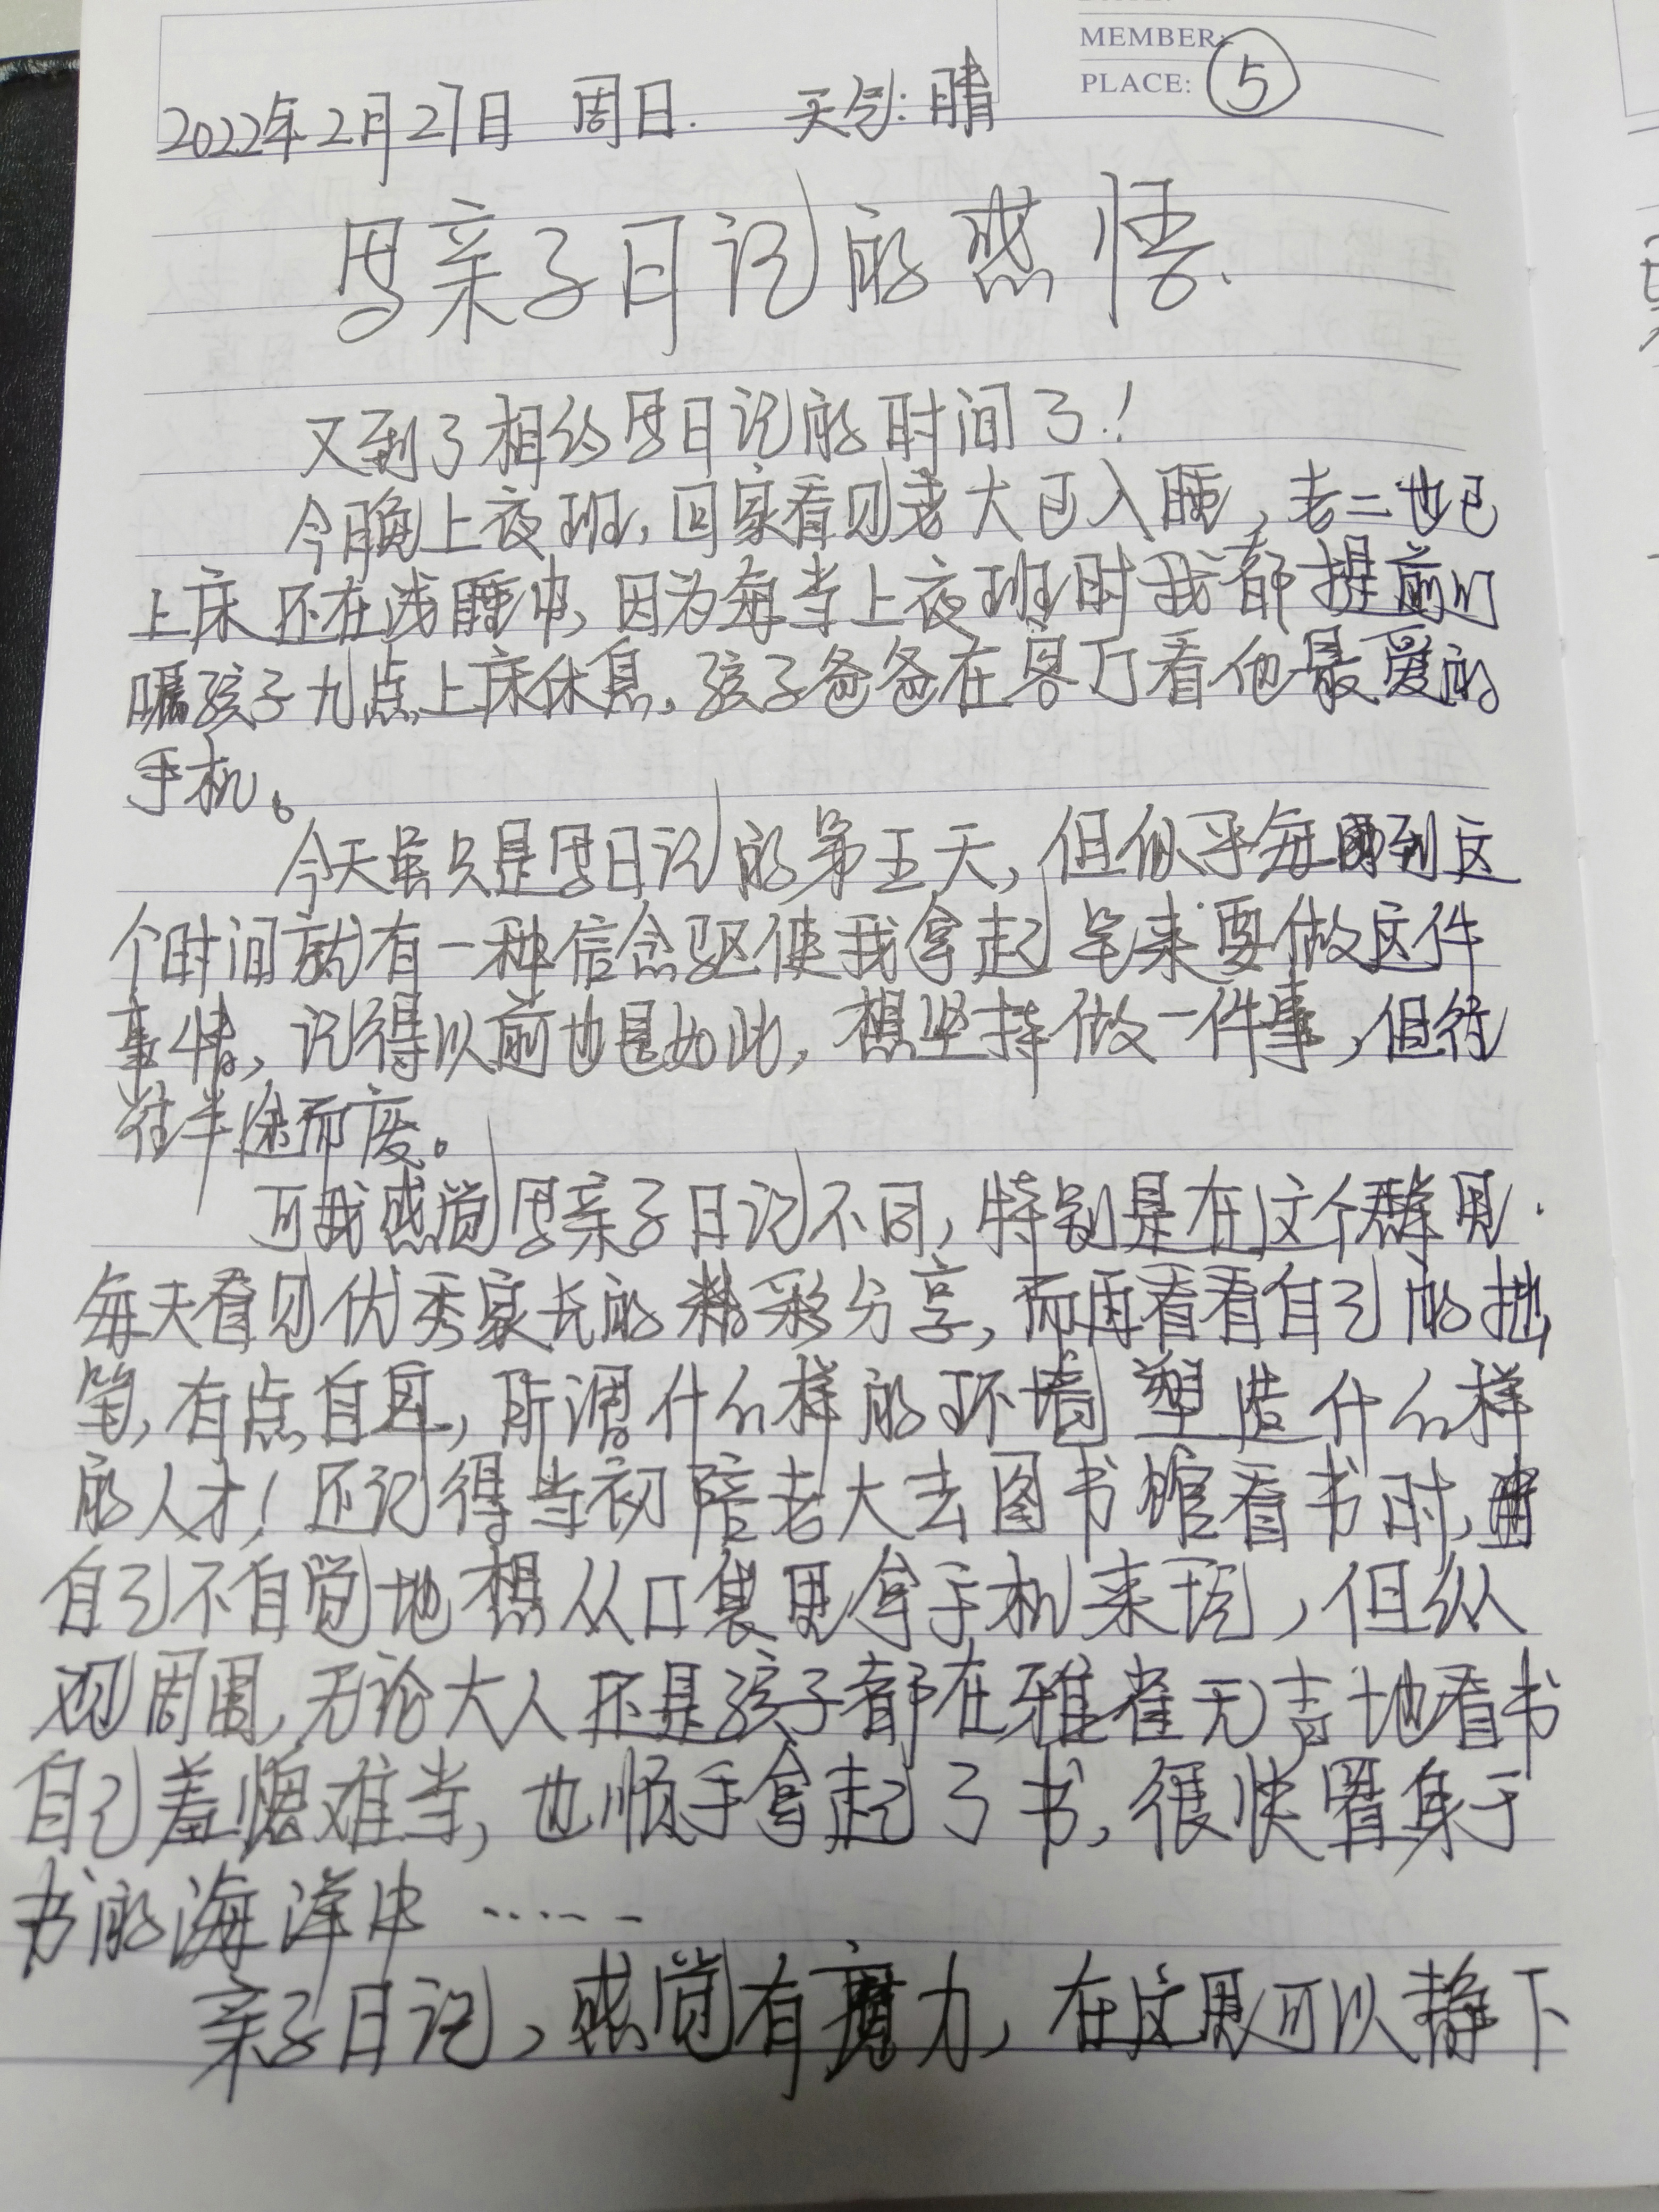 MEMBER:
PLACE: ⑤
2022年2月27日 周日. 天气:晴
写亲子日记的感悟.
又到了相约写日记的时间了!
今晚上夜班,回家看见老大已入睡,老二也已
上床还在浅睡中,因为每当上夜班时我都提前叮
嘱孩子九点上床休息,孩子爸爸在客厅看他最爱的
手机。
今天虽只是写日记的第五天,但似乎每到这
个时间就有一种信念驱使我拿起笔来要做这件
事情,记得以前也是如此,想坚持做一件事,但往
往半途而废。
可我感觉写亲子日记不同,特别是在这个群里.
每天看见优秀家长的精彩分享,而再看看自己的拙
笔,有点自卑,所谓什么样的环境塑造什么样
的人才!还记得当初陪老大去图书馆看书时,
自己不自觉地想从口袋里拿手机来玩,但纵
观周围,无论大人还是孩子都在雅雀无声地看书
自己羞愧难当,也顺手拿起了书,很快置身于
书的海洋中……
亲子日记,感觉有魔力,在这里可以静下